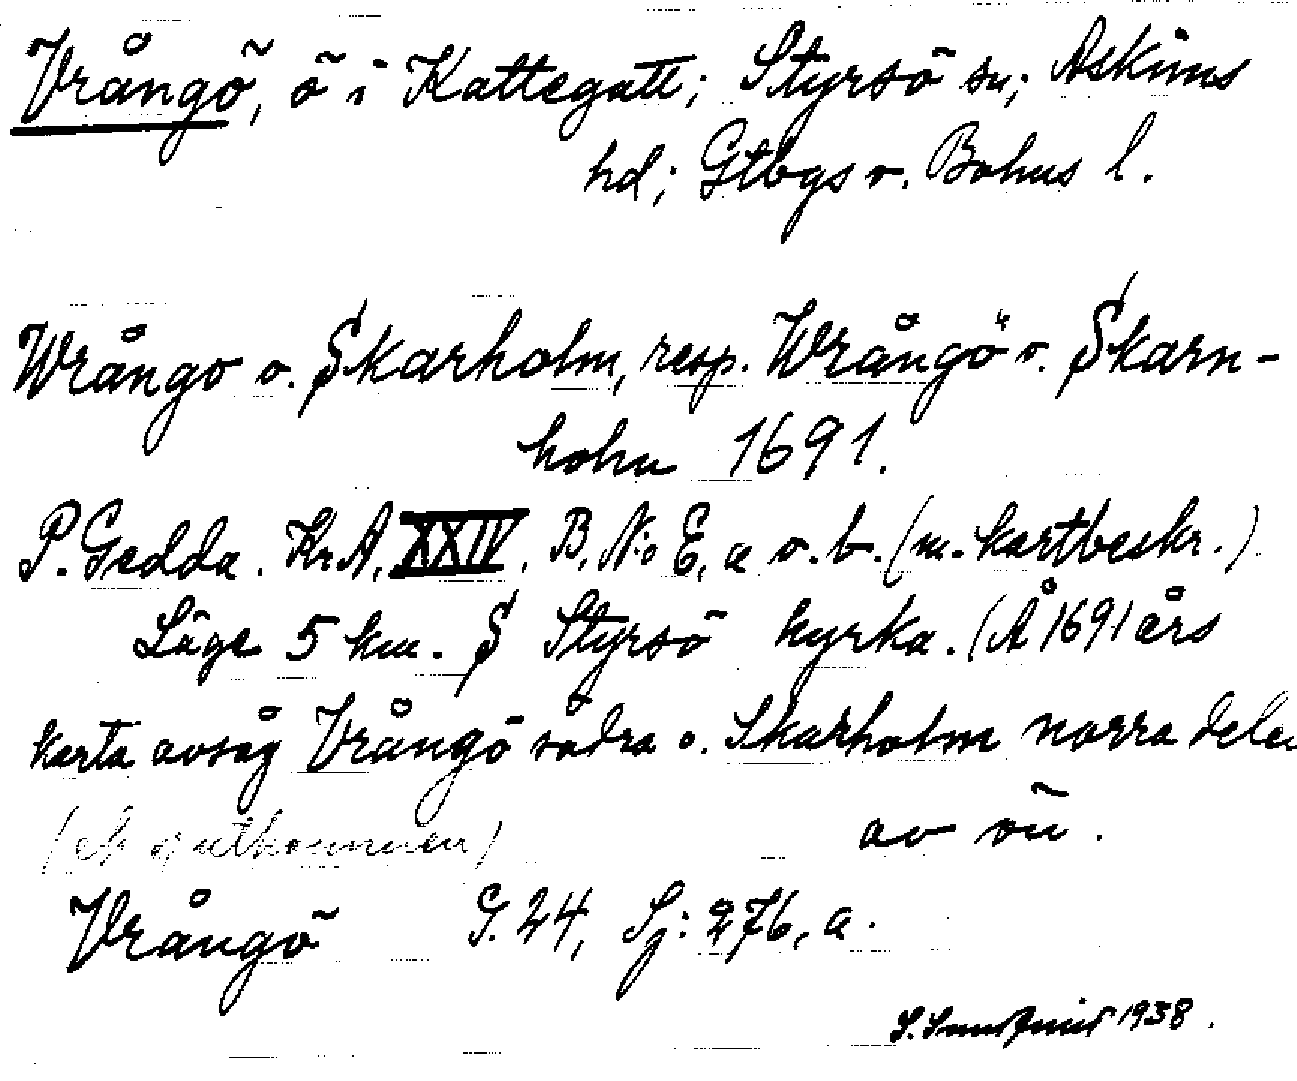 Vrångö, ö i Kattegatt; Styrsö sn; Askims
hd; Gtbgs o. Bohus l.
Wrångo o. Skarholm, resp. Wrångö o. Skarn-
holm 1691.
P. Gedda. Kr.A. XXIV. B. No E, a o. b. (m. kartbeskr.)
Läge 5 km. S Styrsö kyrka. (Å 1691 års
karta avsåg Vrångö södra o. Skarholm norra delen
av ön.
(ej utkommen)
Vrångö G. 24, Sj: 276, a.
S. 1938.